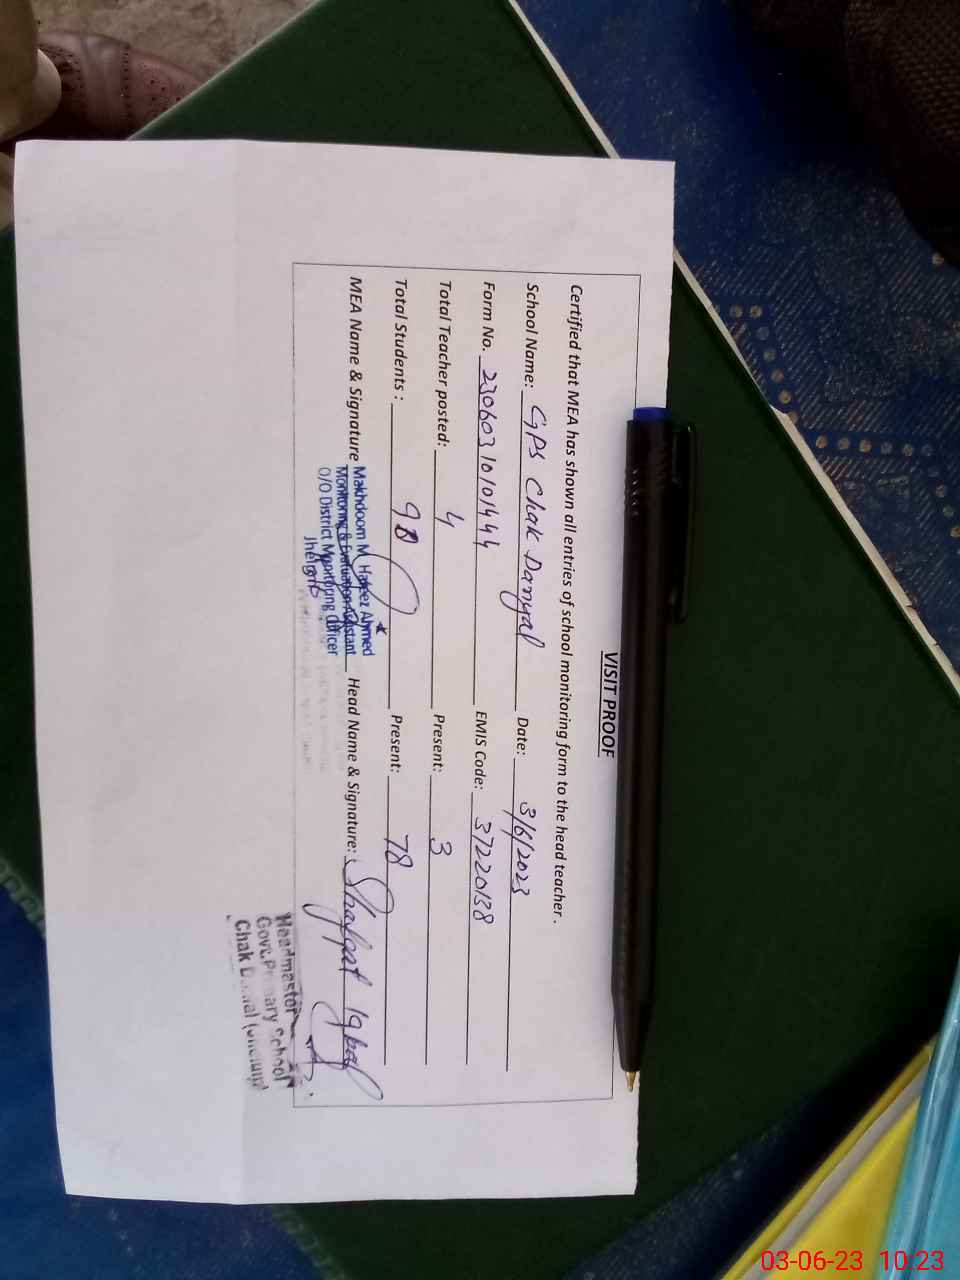 VISIT PROOF
Certified that MEA has shown all entries of school monitoring form to the head teacher.
School Name: GPS Chak Danyal Date: 3/6/2023
Form No. 23060310101444 EMIS Code: 37220138
Total Teacher posted: 4 Present: 3
Total Students : 98 Present: 78
MEA Name & Signature Head Name & Signature: Shafqat Iqbal
Makhdoom M. Hafeez Ahmed
Monitoring & Evaluation Assistant
O/O District Monitoring Officer
Jhelum
Headmaster
Govt. Primary School
Chak
03-06-23 10:23